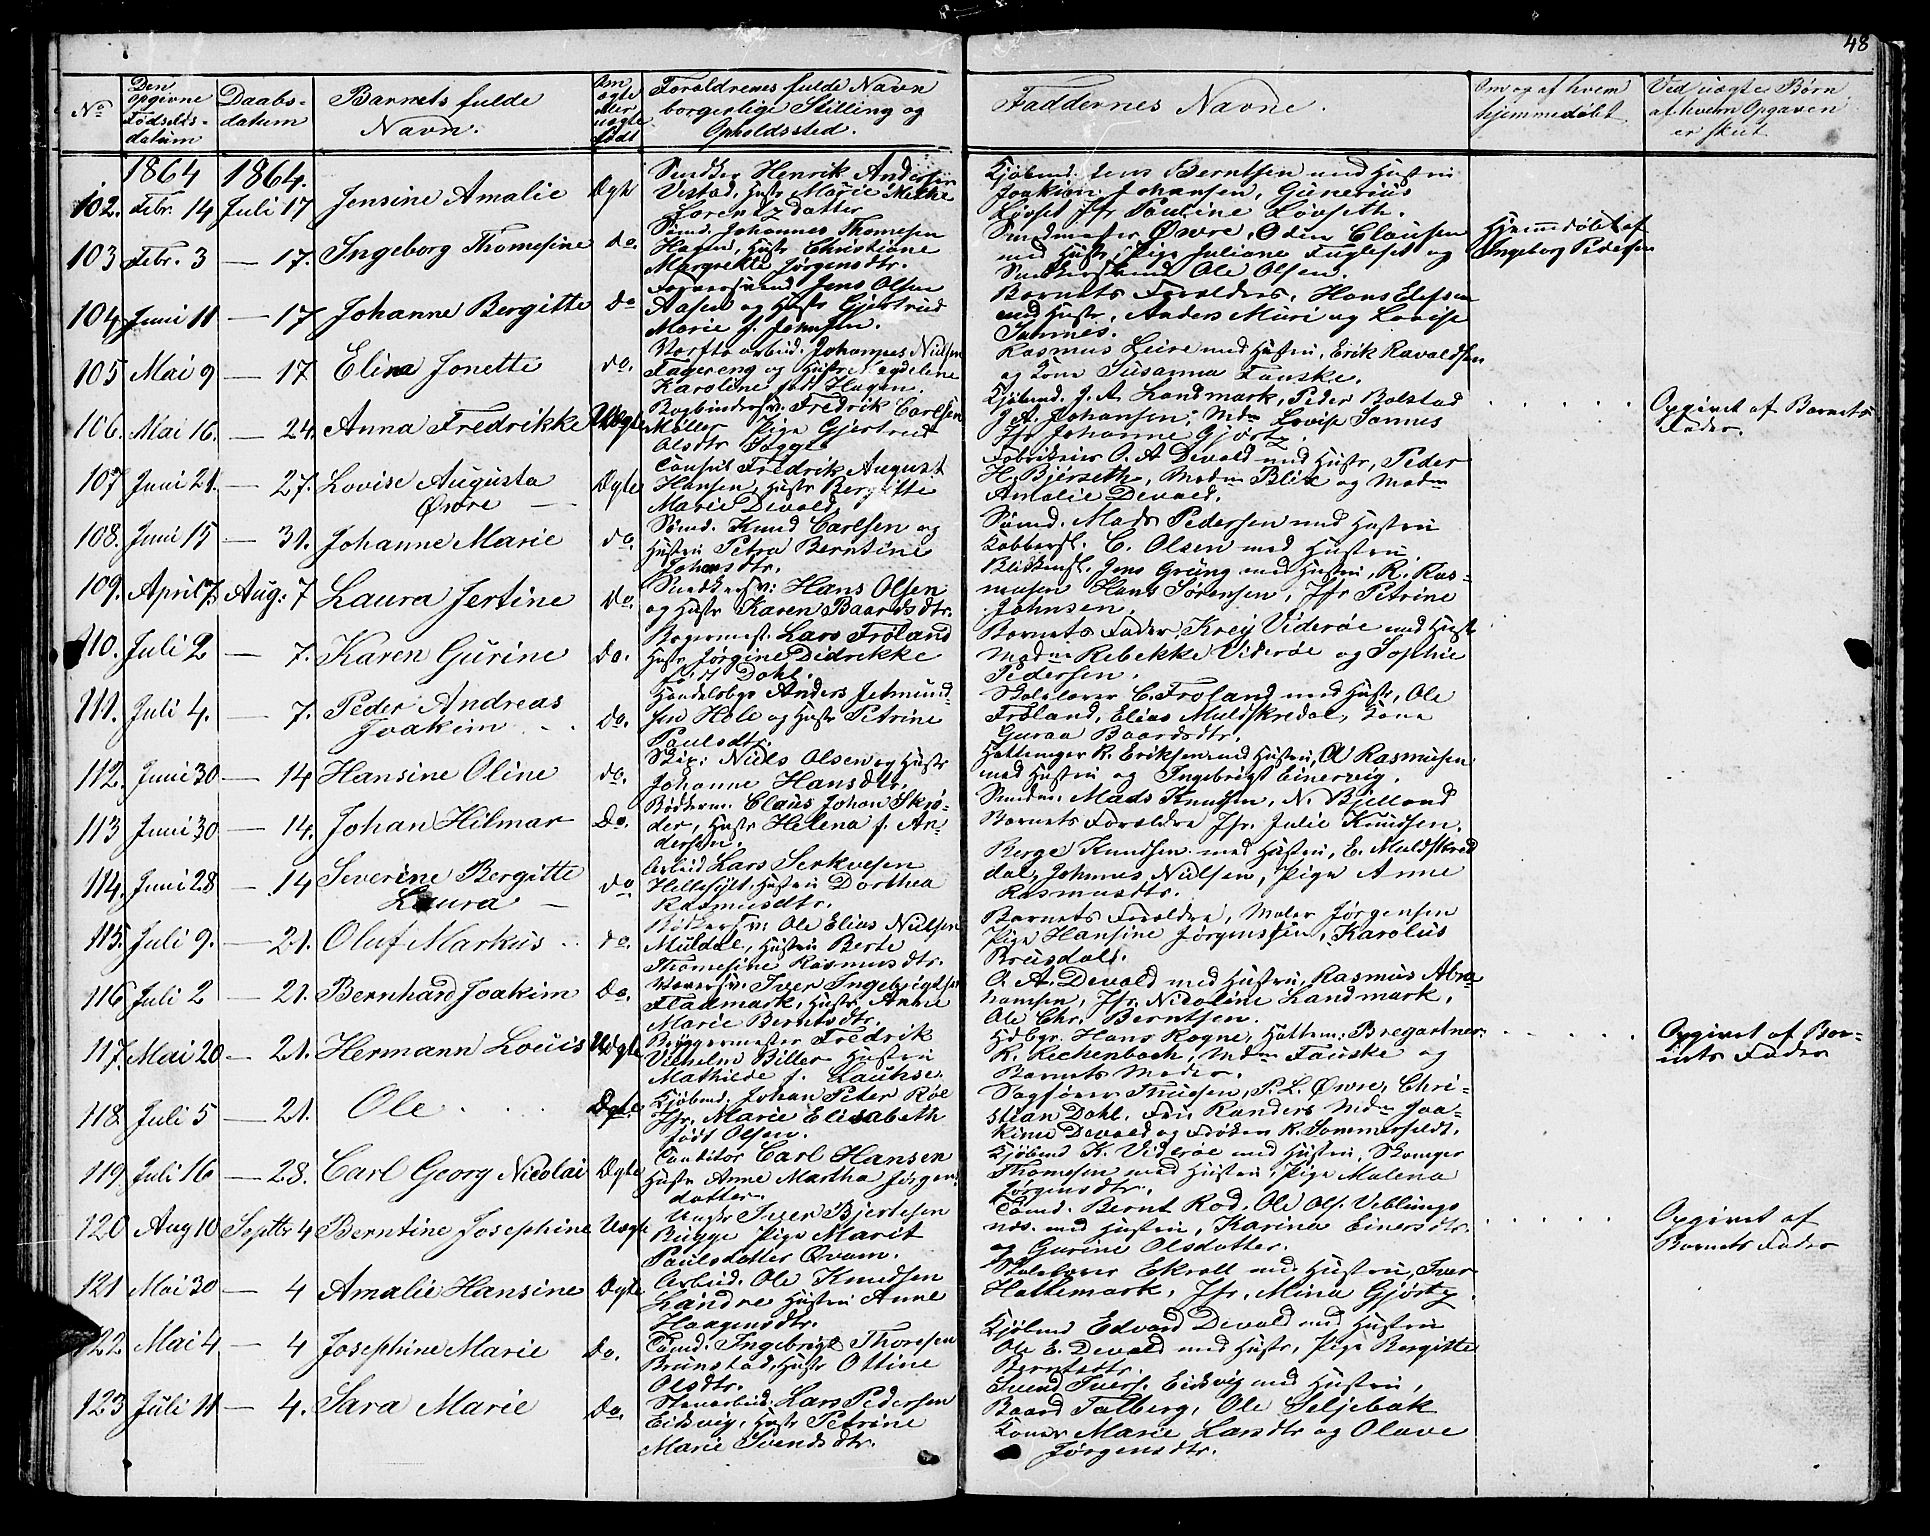 48
No
Den opgivne Fødsels-datum
Daabs-datum
Barnets fulde Navn.
Om ægte eller uægte født
Forældrenes fulde Navn borgerlige Stilling og Opholdssted.
Faddernes Navne.
Om og af hvem hjemmedøbt
Ved uægte Børn af hvem Opgaven er skeet
1864 1864.
102. Febr. 14 Juli 17 Jensine Amalie Ægte
Snedker Henrik Andersen
Vestad, Hustr Marie Mekke
Lorentzdatter
Kjøbmd. Jens Berntsen med Hustru
Joakim Johansen, Gunerius
Løvset Jfr Pauline Løvseth.
103 Febr. 3 — 17. Ingeborg Thomesine do.
Sømd. Johannes Thomesen
Hagen, Hustr Christiane
Margrethe Jørgensdtr.
Sundmester Øvre, Oden Clausen
med Hustr, Pige Juliane Fugleset og
Snedkersvend Ole Olsen.
Hjemmdøbt af
Ingeborg Pedersen
104 Juni 11 — 17 Johanne Bergitte do
Jens Olsen
Aasen og Hustr Gjertrud
Marie f. Jensen.
Barnets Forældre, Hans Elefsen
med Hustr, Anders Muri og Lovise
Sannes.
105 Mai 9 — 17 Elina Jonette do.
Værftsarbeid. Johannes Nielsen
Fagereng og Hustr Magdelene
Karoline født Hagen.
Rasmus Leire med Hustru, Erik Ravaldsen
og Kone Susanna Fauske.
106. Mai 16. — 24. Anna Fredrikke Uægte
Bogbindersv. Fredrik Carlsen
Møller Pige Gjertrud
Olsdtr Bugge
Kjøbmd. J. A. Landmark, Peder Bolstad
J A Johansen, Mdm Lovise Sannes
Jfr Johanne Gjørtz.
Opgivet af Barnets
Fader.
107 Juni 21. — 27. Lovise Augusta
Øvre — Ægte
Consul Fredrik August
Hansen, Hustr Bergitte
Marie Devold
Fabrikeier O. A Devold med Hustr, Peder
H. Bjerseth, Madm Blix og Madm
Amalie Devold.
108. Juni 15 — 31. Johanne Marie do
Sømd. Knud Carlsen og
Hustru Petra Berntine
Johansdtr.
Sømd. Mads Pedersen med Hustru
Kobbersl. C. Olsen med Hustru
109. April 7. Aug. 7 Laura Jertine do.
Snedkersv: Hans Olsen
og Hustr Karen Baardsdtr.
Blikkensl. Jens Grüng med Hustru, R. Ras-
musen Hans Sørensen, Jfr Petrine
Johnsen.
110. Juli 2 — 7. Karen Gurine do.
Bagermest. Lars Frøland
Hustr Jørgine Didrikke
født Dahl.
Barnets Fader, Krey Viderøe med Hustr
Madm Rebekke Viderøe og Sophie
Pedersen.
111. Juli 4. — 7. Peder Andreas
Joakim do.
Handelsbgr Anders Jetmund-
sen Hole og Hustr Petrine
Paulsdtr.
Skolelærer C. Frøland med Hustr, Ole
Frøland, Elias Muldskredal, Kone
Guraa Baardsdtr.
112. Juni 30 — 14 Hansine Oline do.
Skip: Niels Olsen og Hustr
Johanne Hansdtr.
Hattemager R. Eriksen med Hustru, A Rasmusen
med Hustru og Ingebrigt Einerveig.
113 Juni 30 — 14. Johan Hilmar do.
Bødkerm. Claus Johan Skrø-
der, Hustr Helena f. An-
dersen.
Mads Knudsen, N. Bjelland
Barnets Forældre Jfr. Julie Knudsen.
114. Juni 28 — 14 Severine Bergitte
Laura — do
Arbeid Lars Serkvesen
Hellesylt, Hustru Dorthea
Rasmusdtr.
Berge Knudsen med Hustru, E. Muldskred
dal, Johannes Nielsen, Pige Anne
Rasmusdtr.
115. Juli 9. — 21. Oluf Markus do.
Bødkersv: Ole Elias Nielsen
Muldal, Hustru Berte
Thomesine Rasmusdtr.
Barnets Forældre, Maler Jørgensen
Pige Hansine Jørgenssen, Karolus
Brusdal.
116 Juli 2 — 21. Bernhard Joakim do.
Iver Ingebrigtsen
Fladmark, Hustr Anne
Marie Berntsdtr.
O. A. Devold med Hustru, Rasmus Abra
hamsen, Jfr. Nicoline Landmark,
Ole Chr. Berntsen.
117. Mai 20 — 21. Hermann Louis Uægte
Bryggermester Fredrik
Vilhelm Biller Hustru
Mathilde f. Lauhse.
Hdbgr. Hans Rogne, Hattem: Bregartner
R. Richenbach, Mdm Fauske og
Barnets Moder.
Opgivet af Bar-
nets Fader
118. Juli 5 — 21. Ole Ægte
Kjøbmd. Johan Peter Røe
Jfr. Marie Elisabeth
født Olsen.
Sagfører Thuesen, P. L. Øvre, Chri-
stian Dahl, Fru Randers Mdm Joa-
kime Devold og Frøken R. Sommerfeldt.
119 Juli 16 — 28. Carl Georg Nicolai Ægte
Conditor Carl Hansen
Hustr Anne Martha Jørgens
datter.
Kjøbmd K. Viderøe med Hustru, Skomager
Thomesen med Hustru, Pige Malena
Jørgensdtr.
120 Aug 10 Septbr 4 Berntine Josephine Uægte
Ungkr Iver Bjertesen
Bugge Pige Marit
Paulsdatter Øvern.
Sømd. Bernt Rød, Ole Ols. Veblungs
nds. med Hustru, Karina Einersdtr.
og Gurine Olsdatter.
Opgivet af
Barnets Fader
121 Mai 30 — 4 Amalie Hansine Ægte
Arbeid. Ole Knudsen
Landre Hustru Anne
Haagensdtr.
Skolelærer Ekroll med Hustru, Iver
Hattemark, Jfr. Mina Gjørtz.
122. Mai 4 — 4 Josephine Marie do.
Sømd. Ingebrigt Thoresen
Brunstad, Hustr Ottine
Olsdtr.
Kjøbmd Edvard Devold med Hustru
Ole E. Devold med Hustr, Pige Bergitte
Berntsdtr.
123 Juli 11 — 4. Sara Marie do.
Lars Pedersen
Eidsvig, Hustr Petrine
Marie Svendsdtr.
Svend Ivers. Eidsvig med Hustru,
Baard Talberg, Ole Seljebak
Koner Marie Larsdtr og Olave
Jørgensdtr.